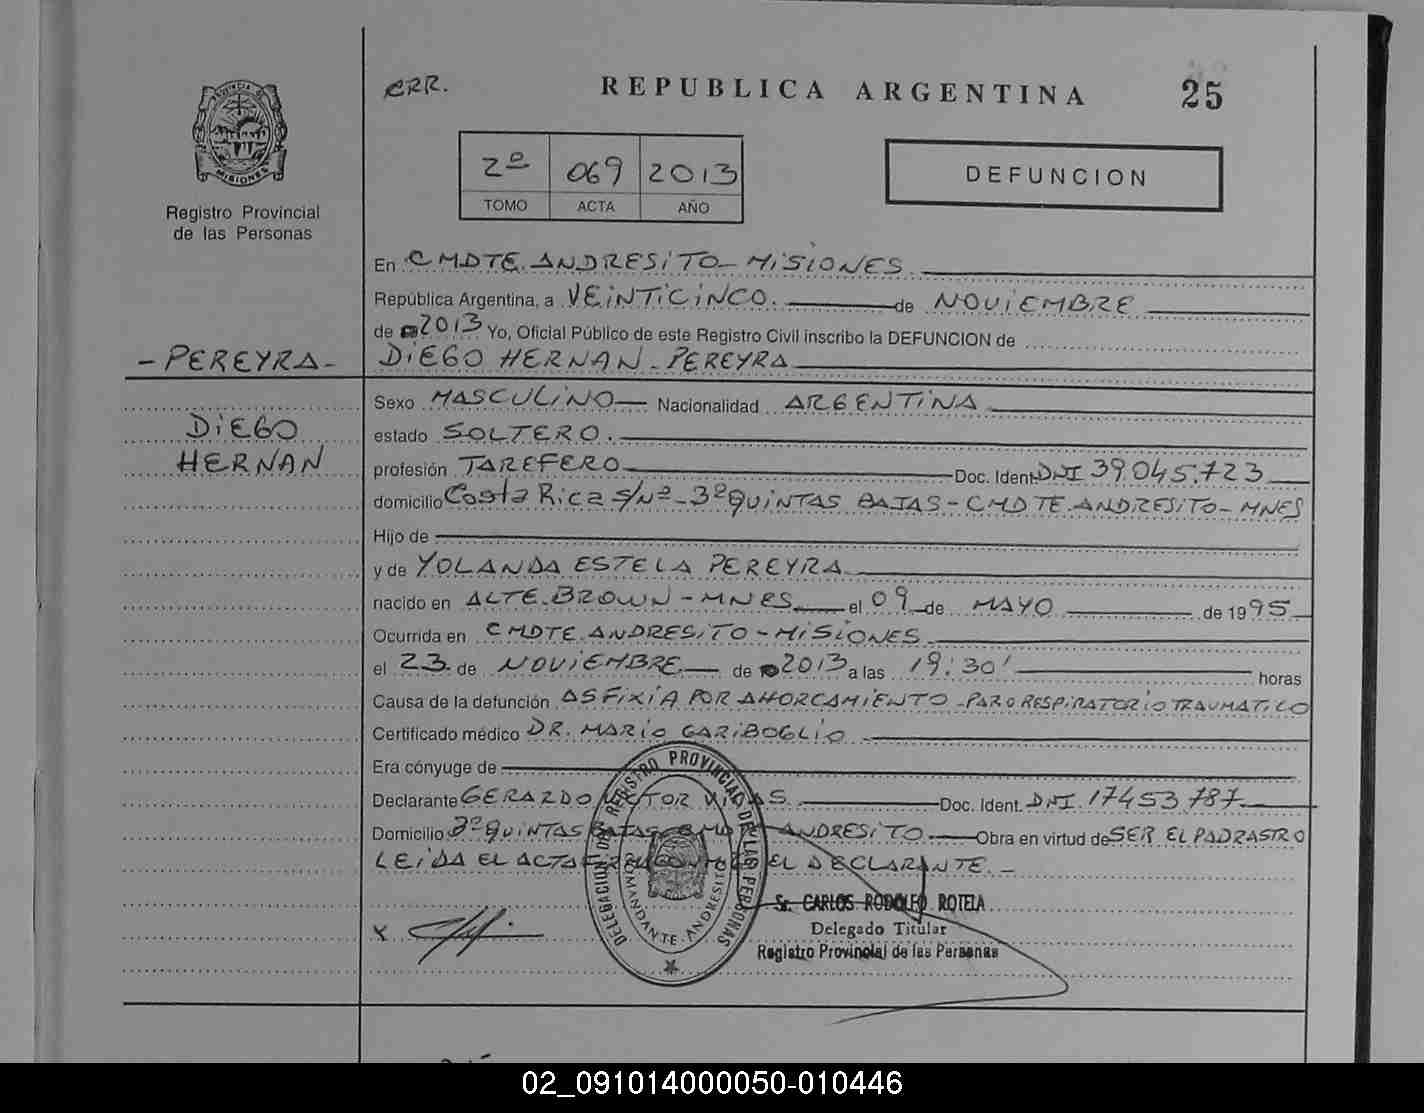 CRR.
REPUBLICA ARGENTINA
25
PROVINCIA DE
MISIONES
Registro Provincial
de las Personas
2º 069 2013
TOMO ACTA AÑO
DEFUNCION
En CMDTE. ANDRESITO - MISIONES
República Argentina, a VEINTICINCO. de NOVIEMBRE
de 2013 Yo, Oficial Público de este Registro Civil inscribo la DEFUNCION de
- PEREYRA - DIEGO HERNAN - PEREYRA
Sexo MASCULINO Nacionalidad ARGENTINA
DIEGO estado SOLTERO.
HERNAN profesión TAREFERO Doc. Ident. DNI 39.045.723
domicilio Costa Rica S/Nº - 3º QUINTAS BAJAS - CMDTE. ANDRESITO - MNES
Hijo de
y de YOLANDA ESTELA PEREYRA
nacido en ALTE. BROWN - MNES el 09 de MAYO de 1995
Ocurrida en CMDTE. ANDRESITO - MISIONES
el 23 de NOVIEMBRE de 2013 a las 19:30' horas
Causa de la defunción ASFIXIA POR AHORCAMIENTO - PARO RESPIRATORIO TRAUMATICO
Certificado médico DR. MARIO GARIBOGLIO
Era cónyuge de
Declarante GERARDO Doc. Ident. DNI 17453787
Domicilio 3º QUINTAS BAJAS - CMDTE ANDRESITO Obra en virtud de SER EL PADRASTRO
LEIDA EL ACTA EL DECLARANTE. -
DELEGACION DEL REGISTRO PROVINCIAL DE LAS PERSONAS
COMANDANTE ANDRESITO
Sr. CARLOS RODOLFO ROTELA
Delegado Titular
Registro Provincial de las Personas
X
02_091014000050-010446